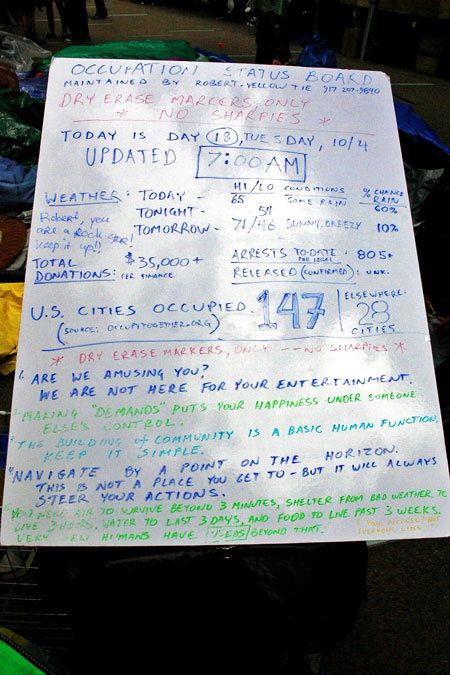 OCCUPATION STATUS BOARD
MAINTAINED BY ROBERT-YELLOW TIE 917 207-9840
DRY ERASE MARKERS, ONLY
* NO SHARPIES *
TODAY IS DAY 18, TUESDAY, 10/4
UPDATED 7:00AM
HI/LO CONDITIONS % CHANCE RAIN
WEATHER: TODAY - 65 SOME RAIN 60%
TONIGHT - 54
TOMORROW - 71/46 SUNNY, BREEZY 10%
Robert, you
are a Rock Star!
keep it up!!
TOTAL DONATIONS: $35,000+
PER FINANCE
ARRESTS TO-DATE: 805+
PER LEGAL
RELEASED (CONFIRMED): UNK.
U.S. CITIES OCCUPIED. 147
(SOURCE: OCCUPYTOGETHER.ORG)
ELSEWHERE:
28
CITIES
* DRY ERASE MARKERS, ONLY -- NO SHARPIES *
ARE WE AMUSING YOU?
WE ARE NOT HERE FOR YOUR ENTERTAINMENT.
MAKING "DEMANDS" PUTS YOUR HAPPINESS UNDER SOMEONE
ELSE'S CONTROL.
THE BUILDING of COMMUNITY IS A BASIC HUMAN FUNCTION,
KEEP IT SIMPLE.
NAVIGATE BY A POINT ON THE HORIZON.
THIS IS NOT A PLACE YOU GET TO - BUT IT WILL ALWAYS
STEER YOUR ACTIONS.
YOU NEED AIR TO SURVIVE BEYOND 3 MINUTES, SHELTER FROM BAD WEATHER TO
LIVE 3 HOURS, WATER TO LAST 3 DAYS, AND FOOD TO LIVE PAST 3 WEEKS.
VERY FEW HUMANS HAVE NEEDS BEYOND THAT.